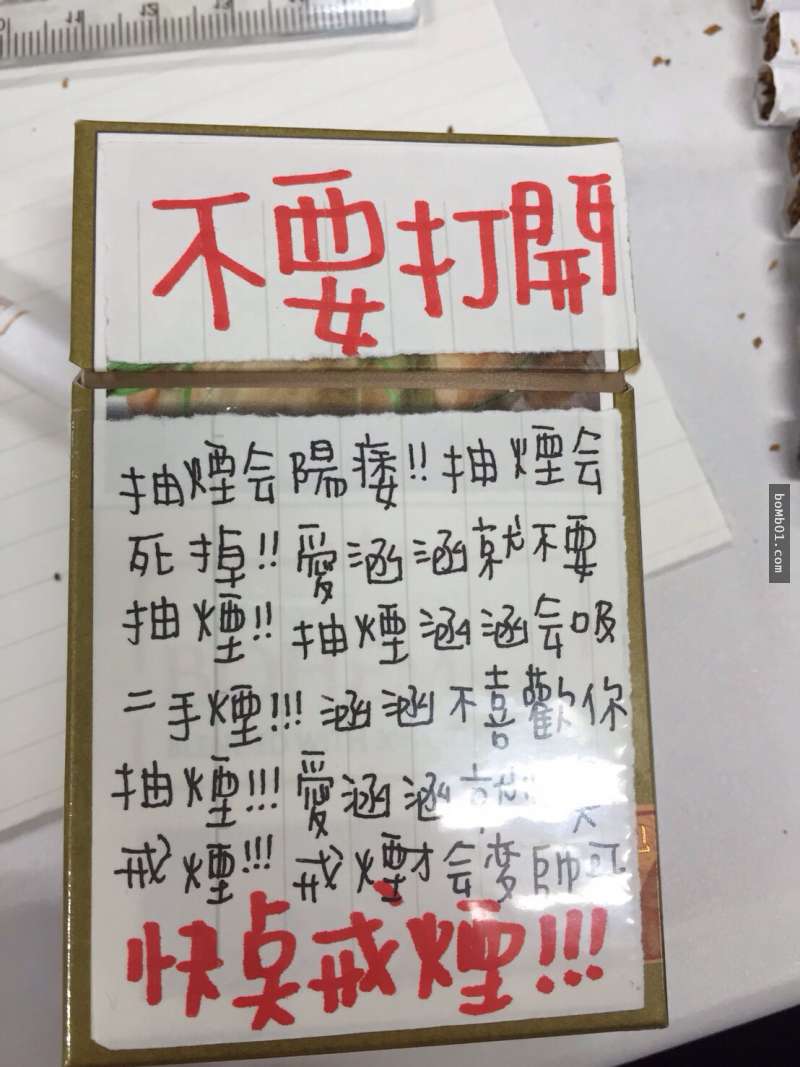 不要打開
抽煙会陽痿!! 抽煙会
死掉!! 愛涵涵就不要
抽煙!! 抽煙涵涵会吸
二手煙!!! 涵涵不喜歡你
抽煙!!! 愛涵涵就
戒煙!!! 戒煙才会變帥
boMb01.Cc